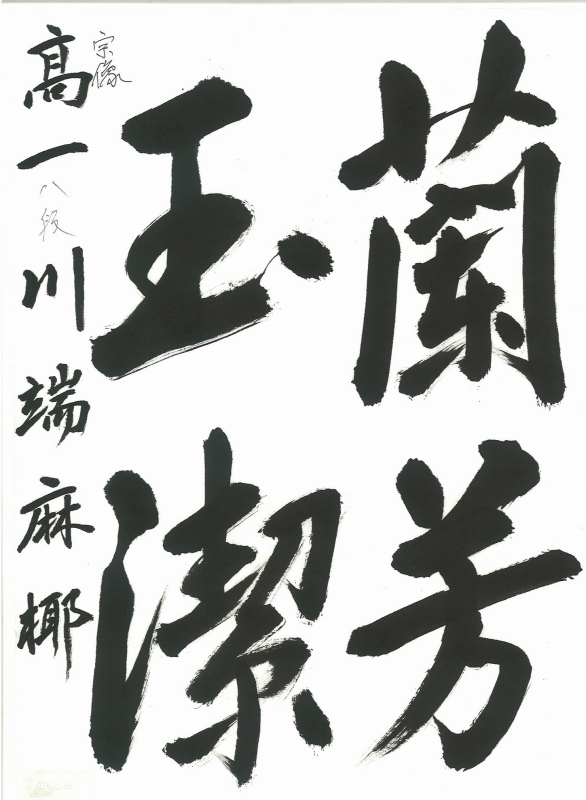 蘭芳
玉潔
高一川端麻椰
宗像
八段